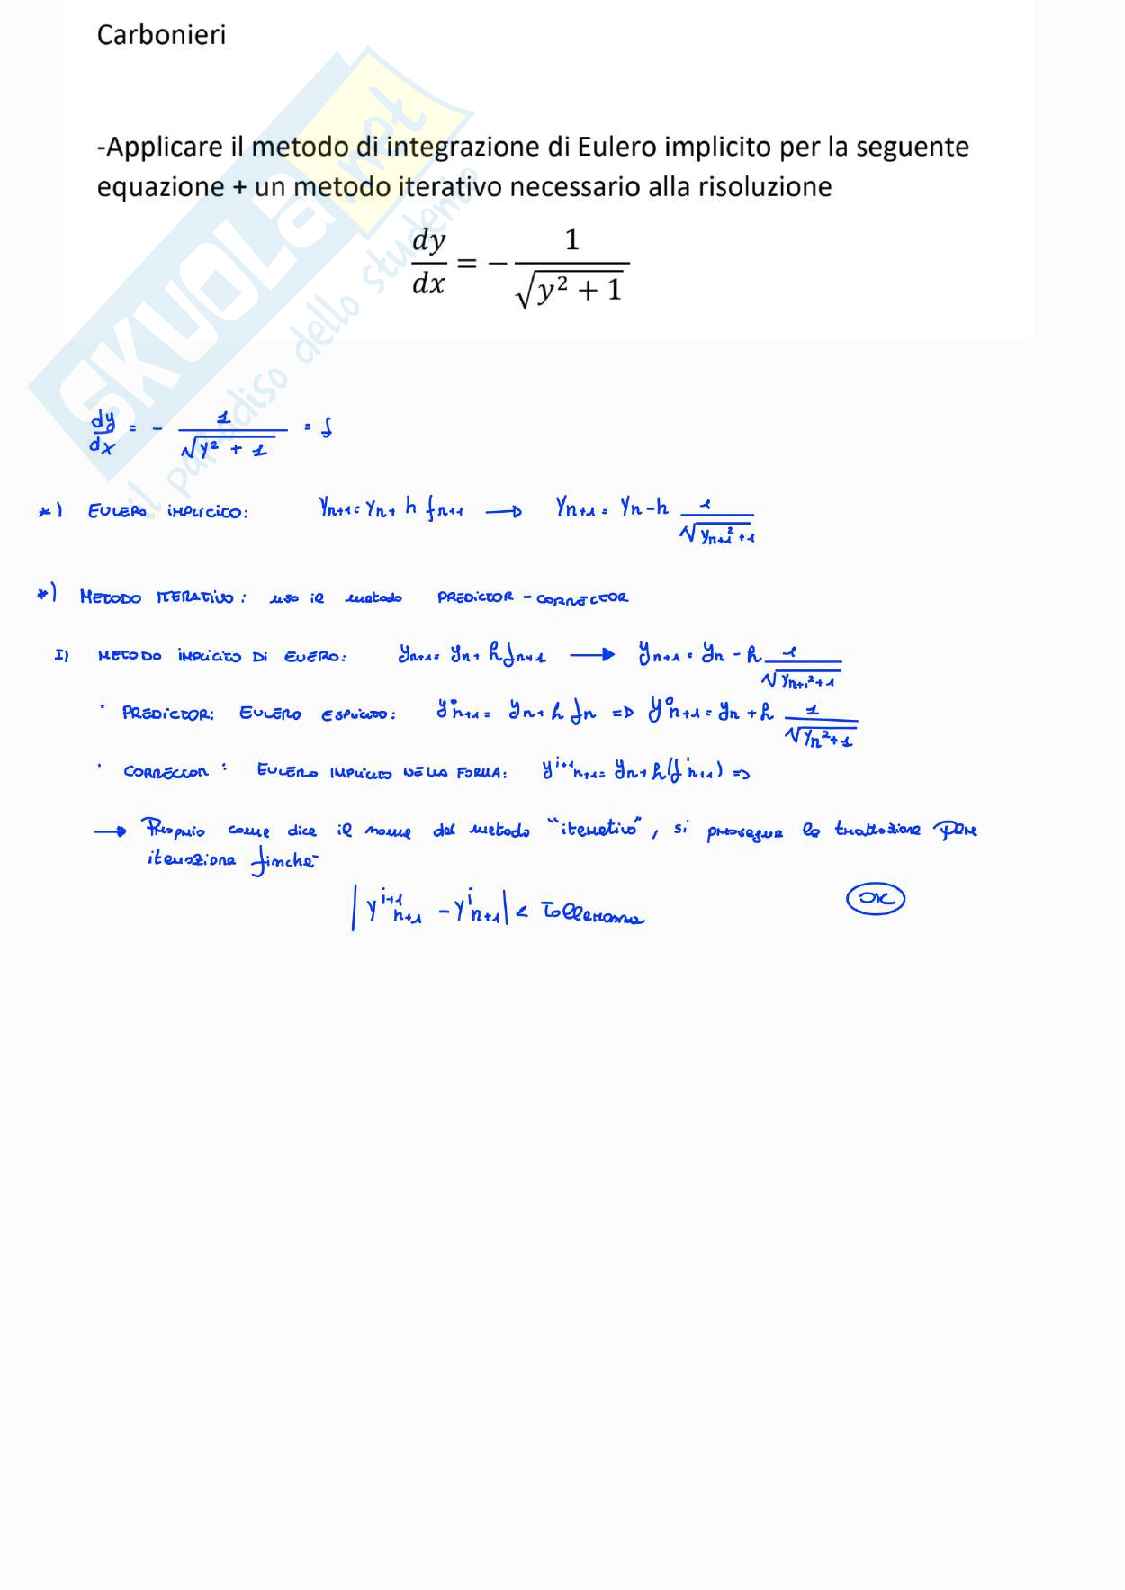 Carbonieri
-Applicare il metodo di integrazione di Eulero implicito per la seguente
equazione + un metodo iterativo necessario alla risoluzione
dy/dx = − 1/√(y² + 1)
SKUOLA.net
il paradiso dello studente
dy/dx = − 1/√(y² + 1) = f
*) EULERO IMPLICITO: yₙ₊₁ = yₙ + h fₙ₊₁ → yₙ₊₁ = yₙ − h 1/√(yₙ₊₁² + 1)
*) METODO ITERATIVO: uso il metodo PREDICTOR - CORRECTOR
I) METODO IMPLICITO DI EULERO: yₙ₊₁ = yₙ + h fₙ₊₁ → yₙ₊₁ = yₙ − h 1/√(yₙ₊₁² + 1)
· PREDICTOR: EULERO ESPLICITO: y⁰ₙ₊₁ = yₙ + h fₙ ⇒ y⁰ₙ₊₁ = yₙ + h 1/√(yₙ² + 1)
· CORRECTOR: EULERO IMPLICITO NELLA FORMA: yⁱ⁺¹ₙ₊₁ = yₙ + h(fⁱₙ₊₁) ⇒
→ Proprio come dice il nome del metodo "iterativo", si prosegue la trattazione per
iterazione finche-
|yⁱ⁺¹ₙ₊₁ − yⁱₙ₊₁| < Tolleranza
OK